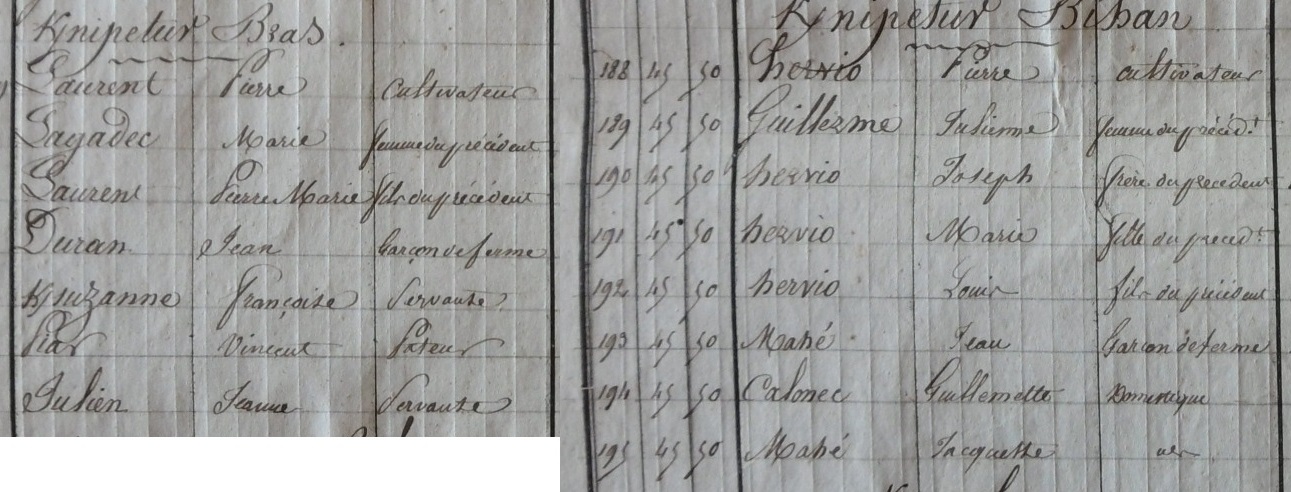 Knipetur Bras.
Laurent Pierre cultivateur
Lagadec Marie femme du précédent
Laurent Pierre Marie fils du précédent
Duran Jean Garçon de ferme
Ksuzanne françoise Servante
Piar Vincent Pateur
Julien Jeanne Servante
Knipetur Bihan
188 45 50 hervio Pierre cultivateur
189 45 50 Guillerme Julienne femme du précéd.t
190 45 50 hervio Joseph frère du precedent
191 45 50 hervio Marie fille du preced.t
192 45 50 hervio Louis fils du précédent
193 45 50 Mahé Jean Garcon de ferme
194 45 50 Calonec Guillemette Domestique
195 45 50 Mahé Jacquette